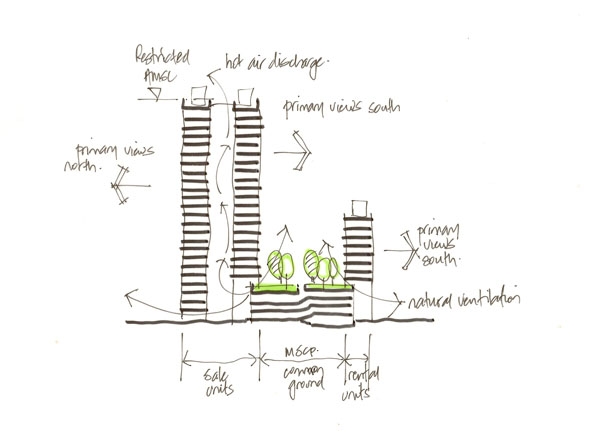 Restricted
AMSL
hot air discharge.
primary views south
primary views
north.
primary
views
south.
natural ventilation
sale
units
MSCP.
common
ground
rental
units